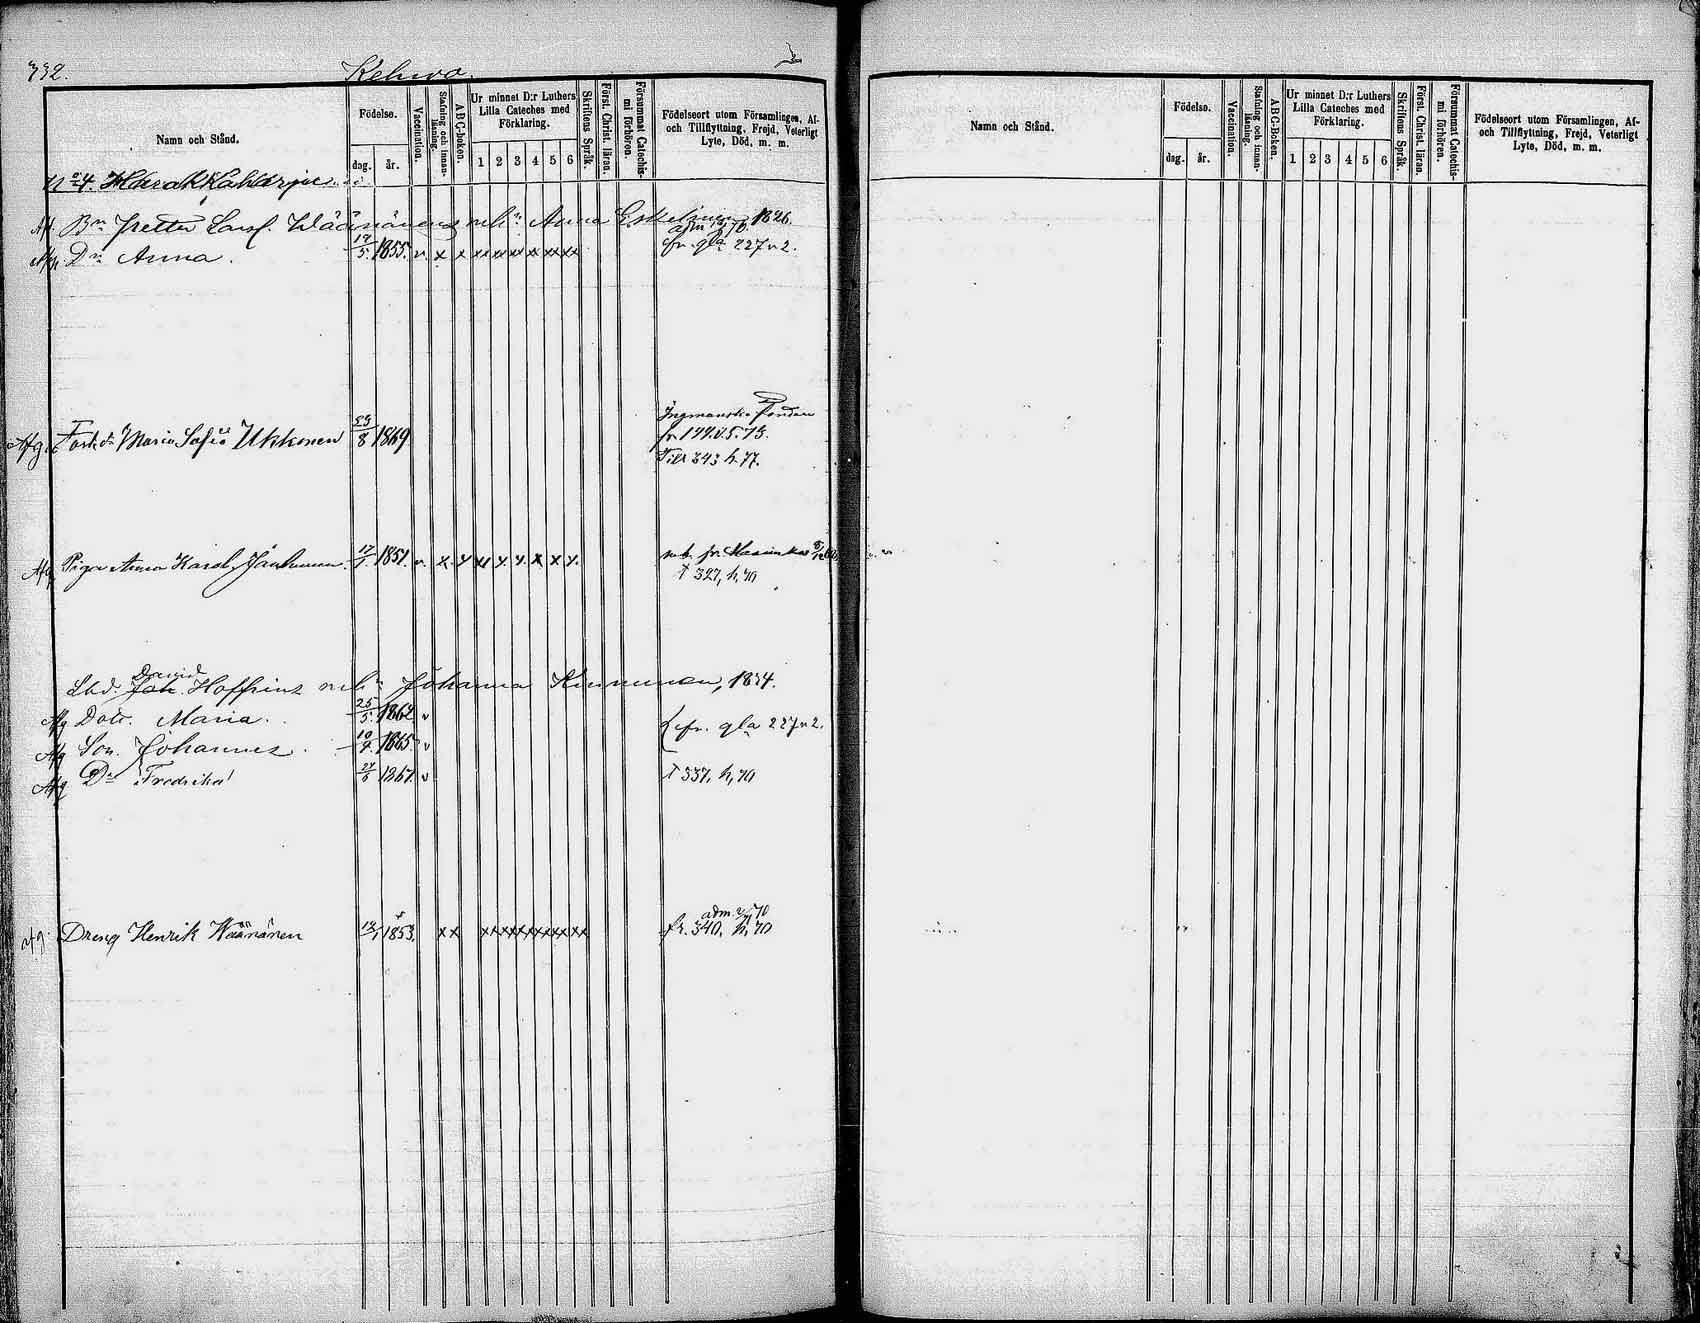 332. Kelwo.
Namn och Stånd.
Födelse.
dag. år.
Vaccination.
Stafning och innan-läsning.
ABC-boken.
Ur minnet D:r Luthers
Lilla Cateches med
Förklaring.
1 2 3 4 5 6
Skriftens Språk.
Först. Christ. läran.
Försummat Catechis-
mi förhören.
Födelseort utom Församlingen, Af-
och Tillflyttning, Frejd, Veterligt
Lyte, Död, m. m.
No 4.
Bn Petter Larsf. Wäänänens mh: Anna Eskelinen 1826.
Dr. Anna. 5. 1855. v x x xx xx xx xx xx xx fr. gla 227 v 2.
Afg. Maria Sofia Ukkonen 8 1869
fr 177. v. 5. 73.
Till 343 h. 77.
Afg Piga Anna Karol. 17 1851. v. x
T 327, h, 70
David
Joh. Hoffrens mh: Johanna Kinnunen, 1834.
Afg Dotr. Maria. 25/5. 1862 v fr. gla 227 v 2.
Afg Son. Johannes 10 1865. v
Afg Dr Fredrika 1867. v T 337, h, 70
adm. 70
Afg. Dreng Henrik Wäänänen 1853. xx xxxxxxxxxxxx fr. 340, h, 70
Namn och Stånd.
Födelse.
dag. år.
Vaccination.
Stafning och innan-läsning.
ABC-boken.
Ur minnet D:r Luthers
Lilla Cateches med
Förklaring.
1 2 3 4 5 6
Skriftens Språk.
Först. Christ. läran.
Försummat Catechis-
mi förhören.
Födelseort utom Församlingen, Af-
och Tillflyttning, Frejd, Veterligt
Lyte, Död, m. m.